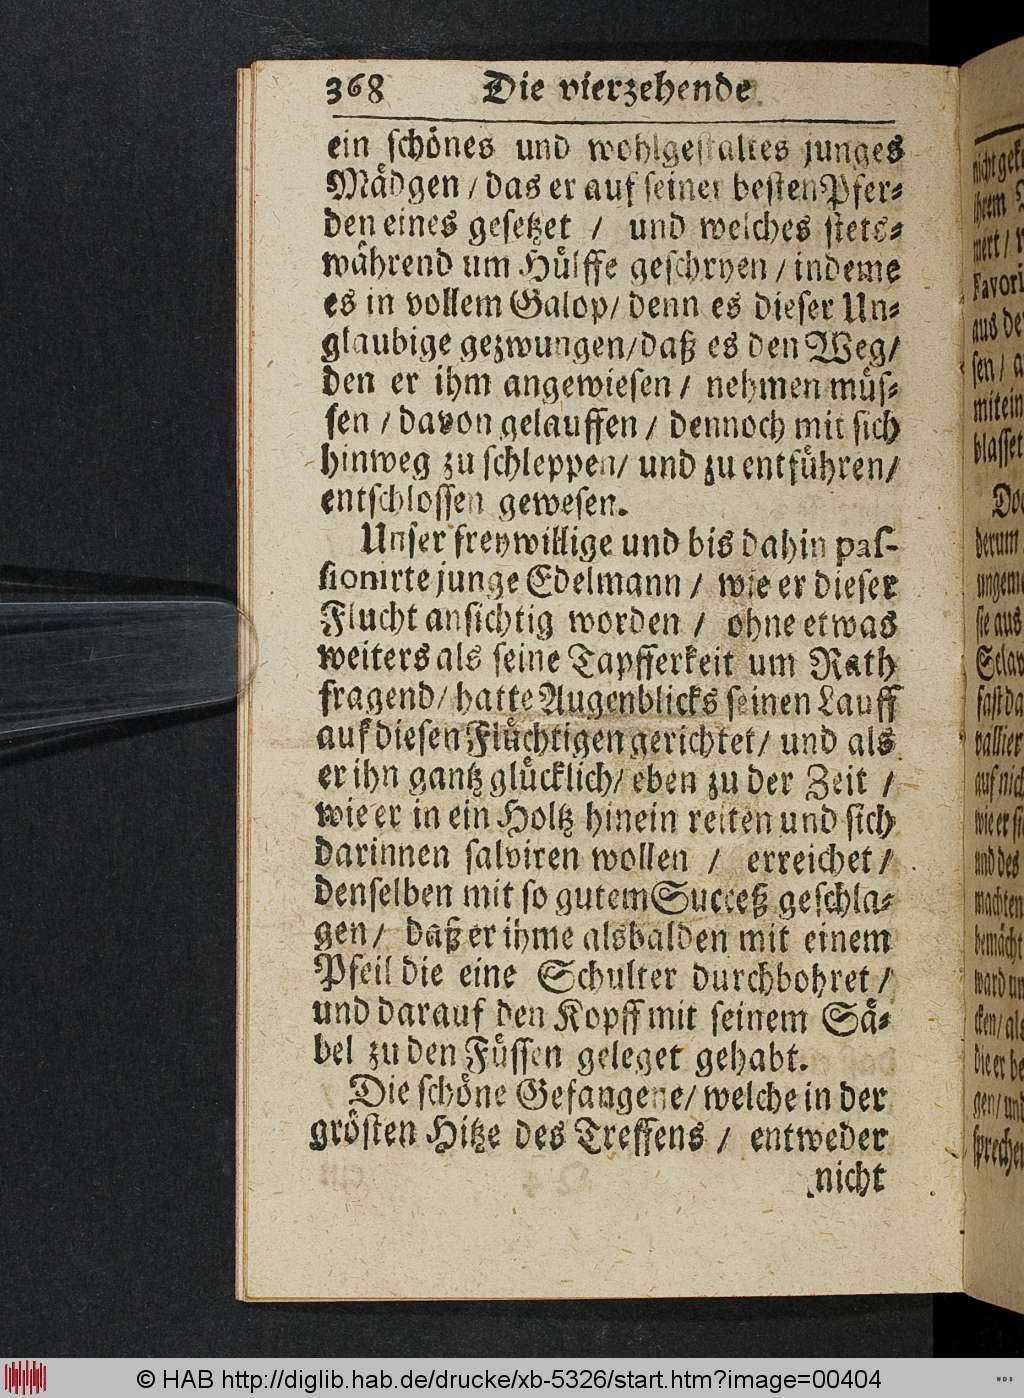 368 Die vierzehende
ein schönes und wohlgestaltes junges
Mädgen / das er auf seiner besten Pfer-
den eines gesetzet / und welches stets-
während um Hülffe geschryen / indeme
es in vollem Galop / denn es dieser Un-
glaubige gezwungen / daß es den Weg /
den er ihm angewiesen / nehmen müs-
sen / davon gelauffen / dennoch mit sich
hinweg zu schleppen / und zu entführen /
entschlossen gewesen.
Unser freywillige und bis dahin pas-
sionirte junge Edelmann / wie er dieser
Flucht ansichtig worden / ohne etwas
weiters als seine Tapfferkeit um Rath
fragend / hatte Augenblicks seinen Lauff
auf diesen Flüchtigen gerichtet / und als
er ihn gantz glücklich / eben zu der Zeit /
wie er in ein Holtz hinein reiten und sich
darinnen salviren wollen / erreichet /
denselben mit so gutem Succeß geschla-
gen / daß er ihme alsbalden mit einem
Pfeil die eine Schulter durchbohret /
und darauf den Kopff mit seinem Sä-
bel zu den Füssen geleget gehabt.
Die schöne Gefangene / welche in der
grösten Hitze des Treffens / entweder
nicht
© HAB http://diglib.hab.de/drucke/xb-5326/start.htm?image=00404